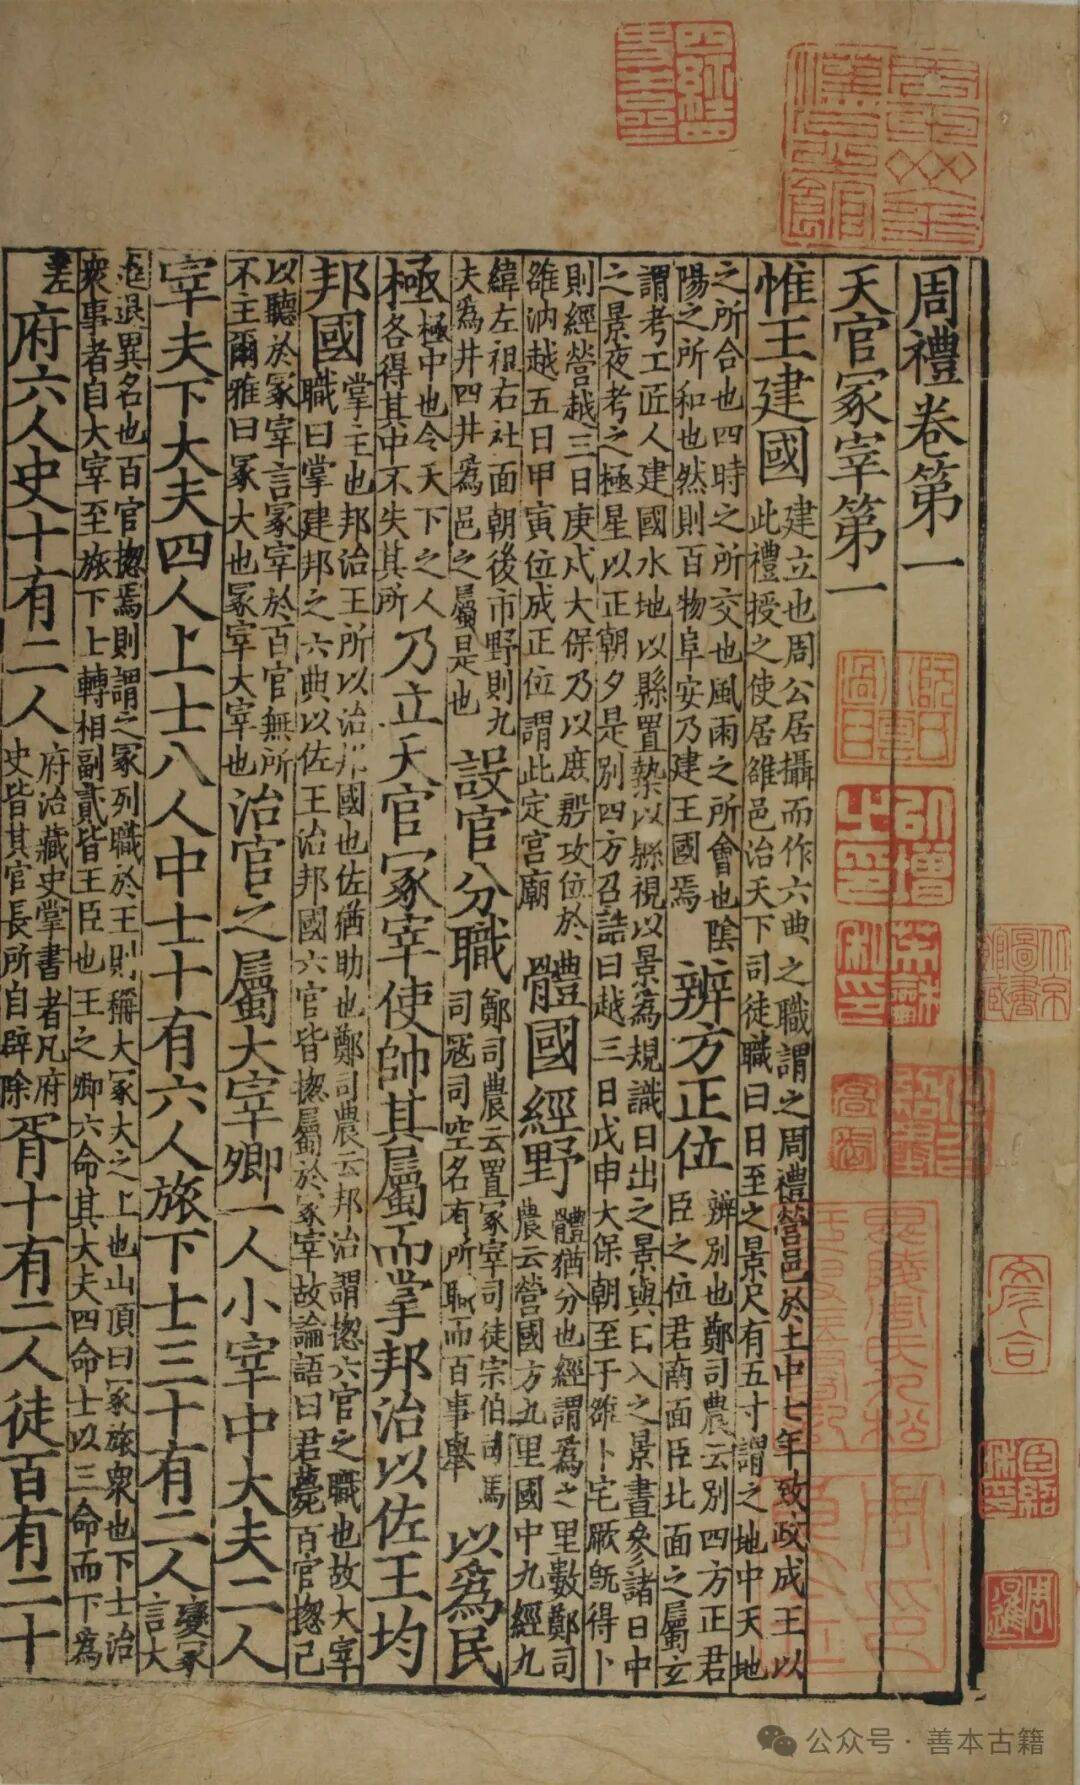 周禮卷第一
天官冢宰第一
惟王建國
建立也周公居攝而作六典之職謂之周禮營邑於土中七年致政成王以
此禮授之使居雒邑治天下司徒職曰日至之景尺有五寸謂之地中天地
之所合也四時之所交也風雨之所會也陰
陽之所和也然則百物阜安乃建王國焉
辨方正位
辨別也鄭司農云別四方正君
臣之位君南面臣北面之屬玄
謂考工匠人建國水地以縣置槷以縣視以景為規識日出之景與日入之景晝參諸日中
之景夜考之極星以正朝夕是別四方召誥曰越三日戊申大保朝至于雒卜宅厥旣得卜
則經營越三日庚戌大保乃以庶殷攻位於
雒汭越五日甲寅位成正位謂此定宮廟
體國經野
體猶分也經謂為之里數鄭司
農云營國方九里國中九經九
緯左祖右社面朝後市野則九
夫爲井四井爲邑之屬是也
設官分職
鄭司農云置冢宰司徒宗伯司馬
司寇司空各有所職而百事舉
以爲民
極
極中也令天下之人
各得其中不失其所
乃立天官冢宰使帥其屬而掌邦治以佐王均
邦國
掌主也邦治王所以治邦國也佐猶助也鄭司農云邦治謂揔六官之職也故大宰
職曰掌建邦之六典以佐王治邦國六官皆揔屬於冢宰故論語曰君薨百官揔己
以聽於冢宰言冢宰於百官無所
不主爾雅曰冢大也冢宰大宰也
治官之屬大宰卿一人小宰中大夫二人
宰夫下大夫四人上士八人中士十有六人旅下士三十有二人
變冢
言大
進退異名也百官揔焉則謂之冢列職於王則稱大冢大之上也山頂曰冢旅衆也下士治
衆事者自大宰至旅下上轉相副貳皆王臣也王之卿六命其大夫四命士以三命而下為
差
府六人史十有二人
府治藏史掌書者凡府
史皆其官長所自辟除
胥十有二人徒百有二十
四經四史之齋
北京圖書館藏
彥合
周暹
公众号·善本古籍